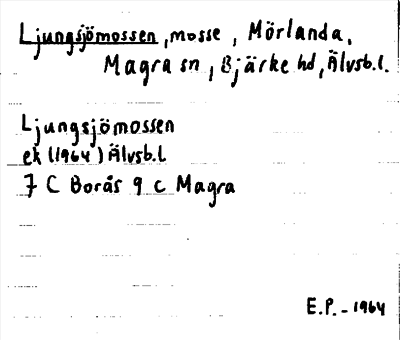 Ljungsjömossen, mosse, Mörlanda,
Magra sn, Bjärke hd, Älvsb.l.
Ljungsjömossen
ek (1964) Älvsb.l
7 C Borås 9 c Magra
E.P. - 1964